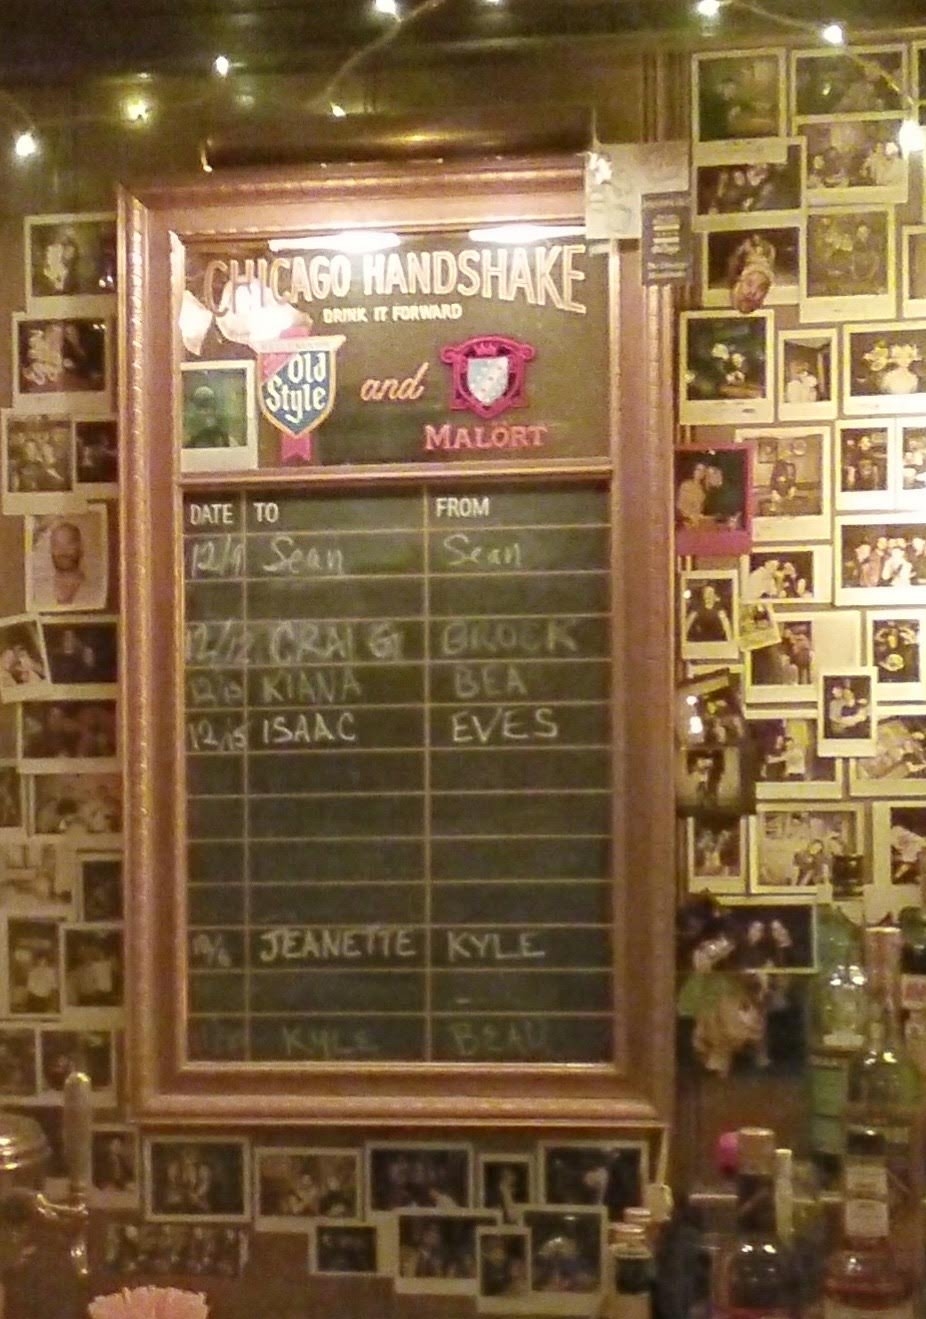 CHICAGO HANDSHAKE
DRINK IT FORWARD
Old Style and MALÖRT
DATE TO FROM
12/9 Sean Sean
12/12 CRAIG BROCK
KIANA BEA
12/15 ISAAC EVES
JEANETTE KYLE
KYLE BEAU